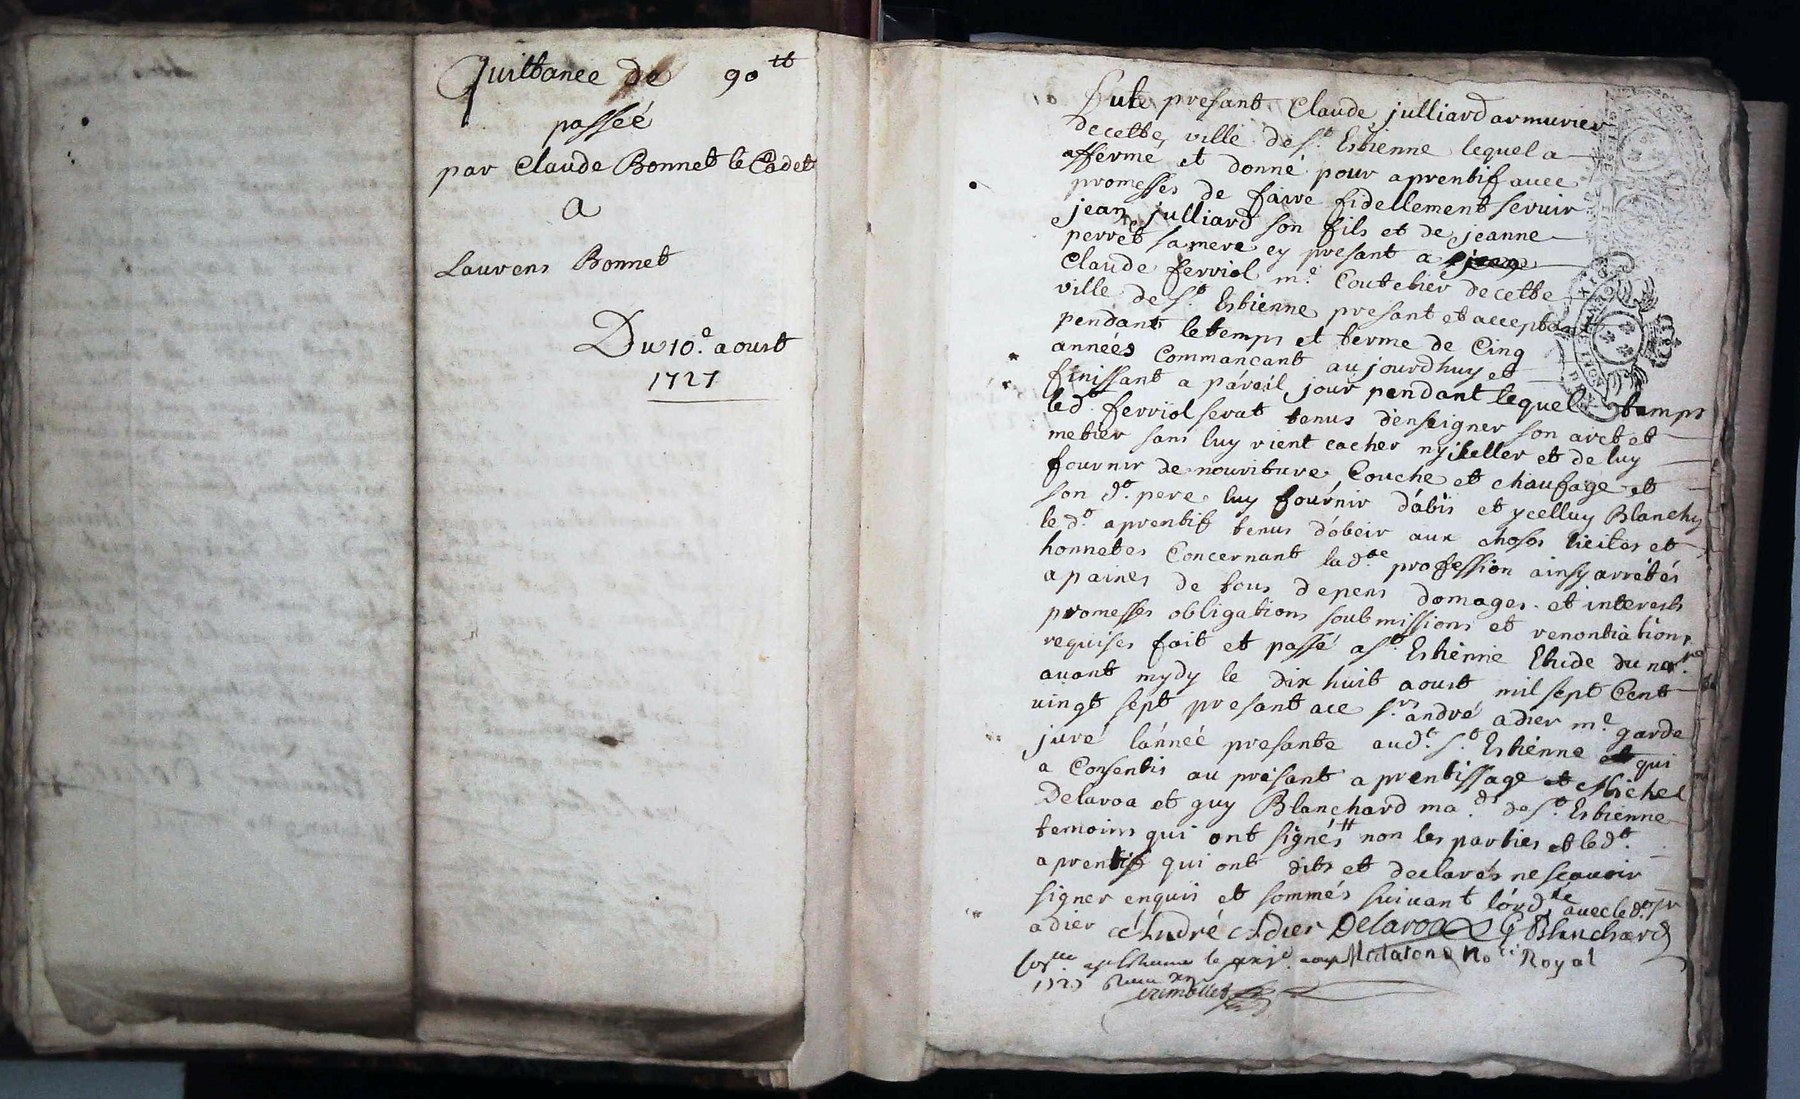 Quittance de 90 tt
passéé
par Claude Bonnet le Cadet
A
Laurens Bonnet
Du 10e. aoust
1727
Fute presant Claude julliard armurier
de cette ville de St. Estienne lequel a
afferme et donné pour aprentif avec
promesses de faire fidellement servir
jean julliard son fils et de jeanne
perret sa mere ey presant a
Claude ferriol me. Coutelier de cette
ville de St. Estienne presant et acceptant
pendant le temps et terme de Cinq
années Commancant aujourdhuy et
finissant a pareil jour pendant lequel temps
led. ferriol serat tenus d'enseigner son art et
metier sans luy rient cacher ny seller et de luy
fournir de nouriture Couche et chaufage et
son dt. pere luy fournir d'abis et ycelluy Blanchy
le dt. aprentif tenus d'obeir aux choses licites et
honnetes Concernant lad.te profession ainsy arrétés
a paines de tous depens domages et interests
promesses obligations soubmissions et renontiations
requises fait et passé a St. Estienne Etude du not.re
avant mydy le dix huit aoust mil sept Cent
vingt sept presant a ce sr. andré adier me. garde
juré l'année presante aud. St. Estienne qui
a Consentis au présant aprentissage et Michel
Delaroa et guy Blanchard ma.d de St. Estienne
temoins qui ont signés tt non les parties et led.
aprentif qui ont dits et declarés ne scavoir
signer enquis et sommés suivant l'ord.ce avec led. sr
adier André Adier Delaroa G Blanchard
Royal
1727